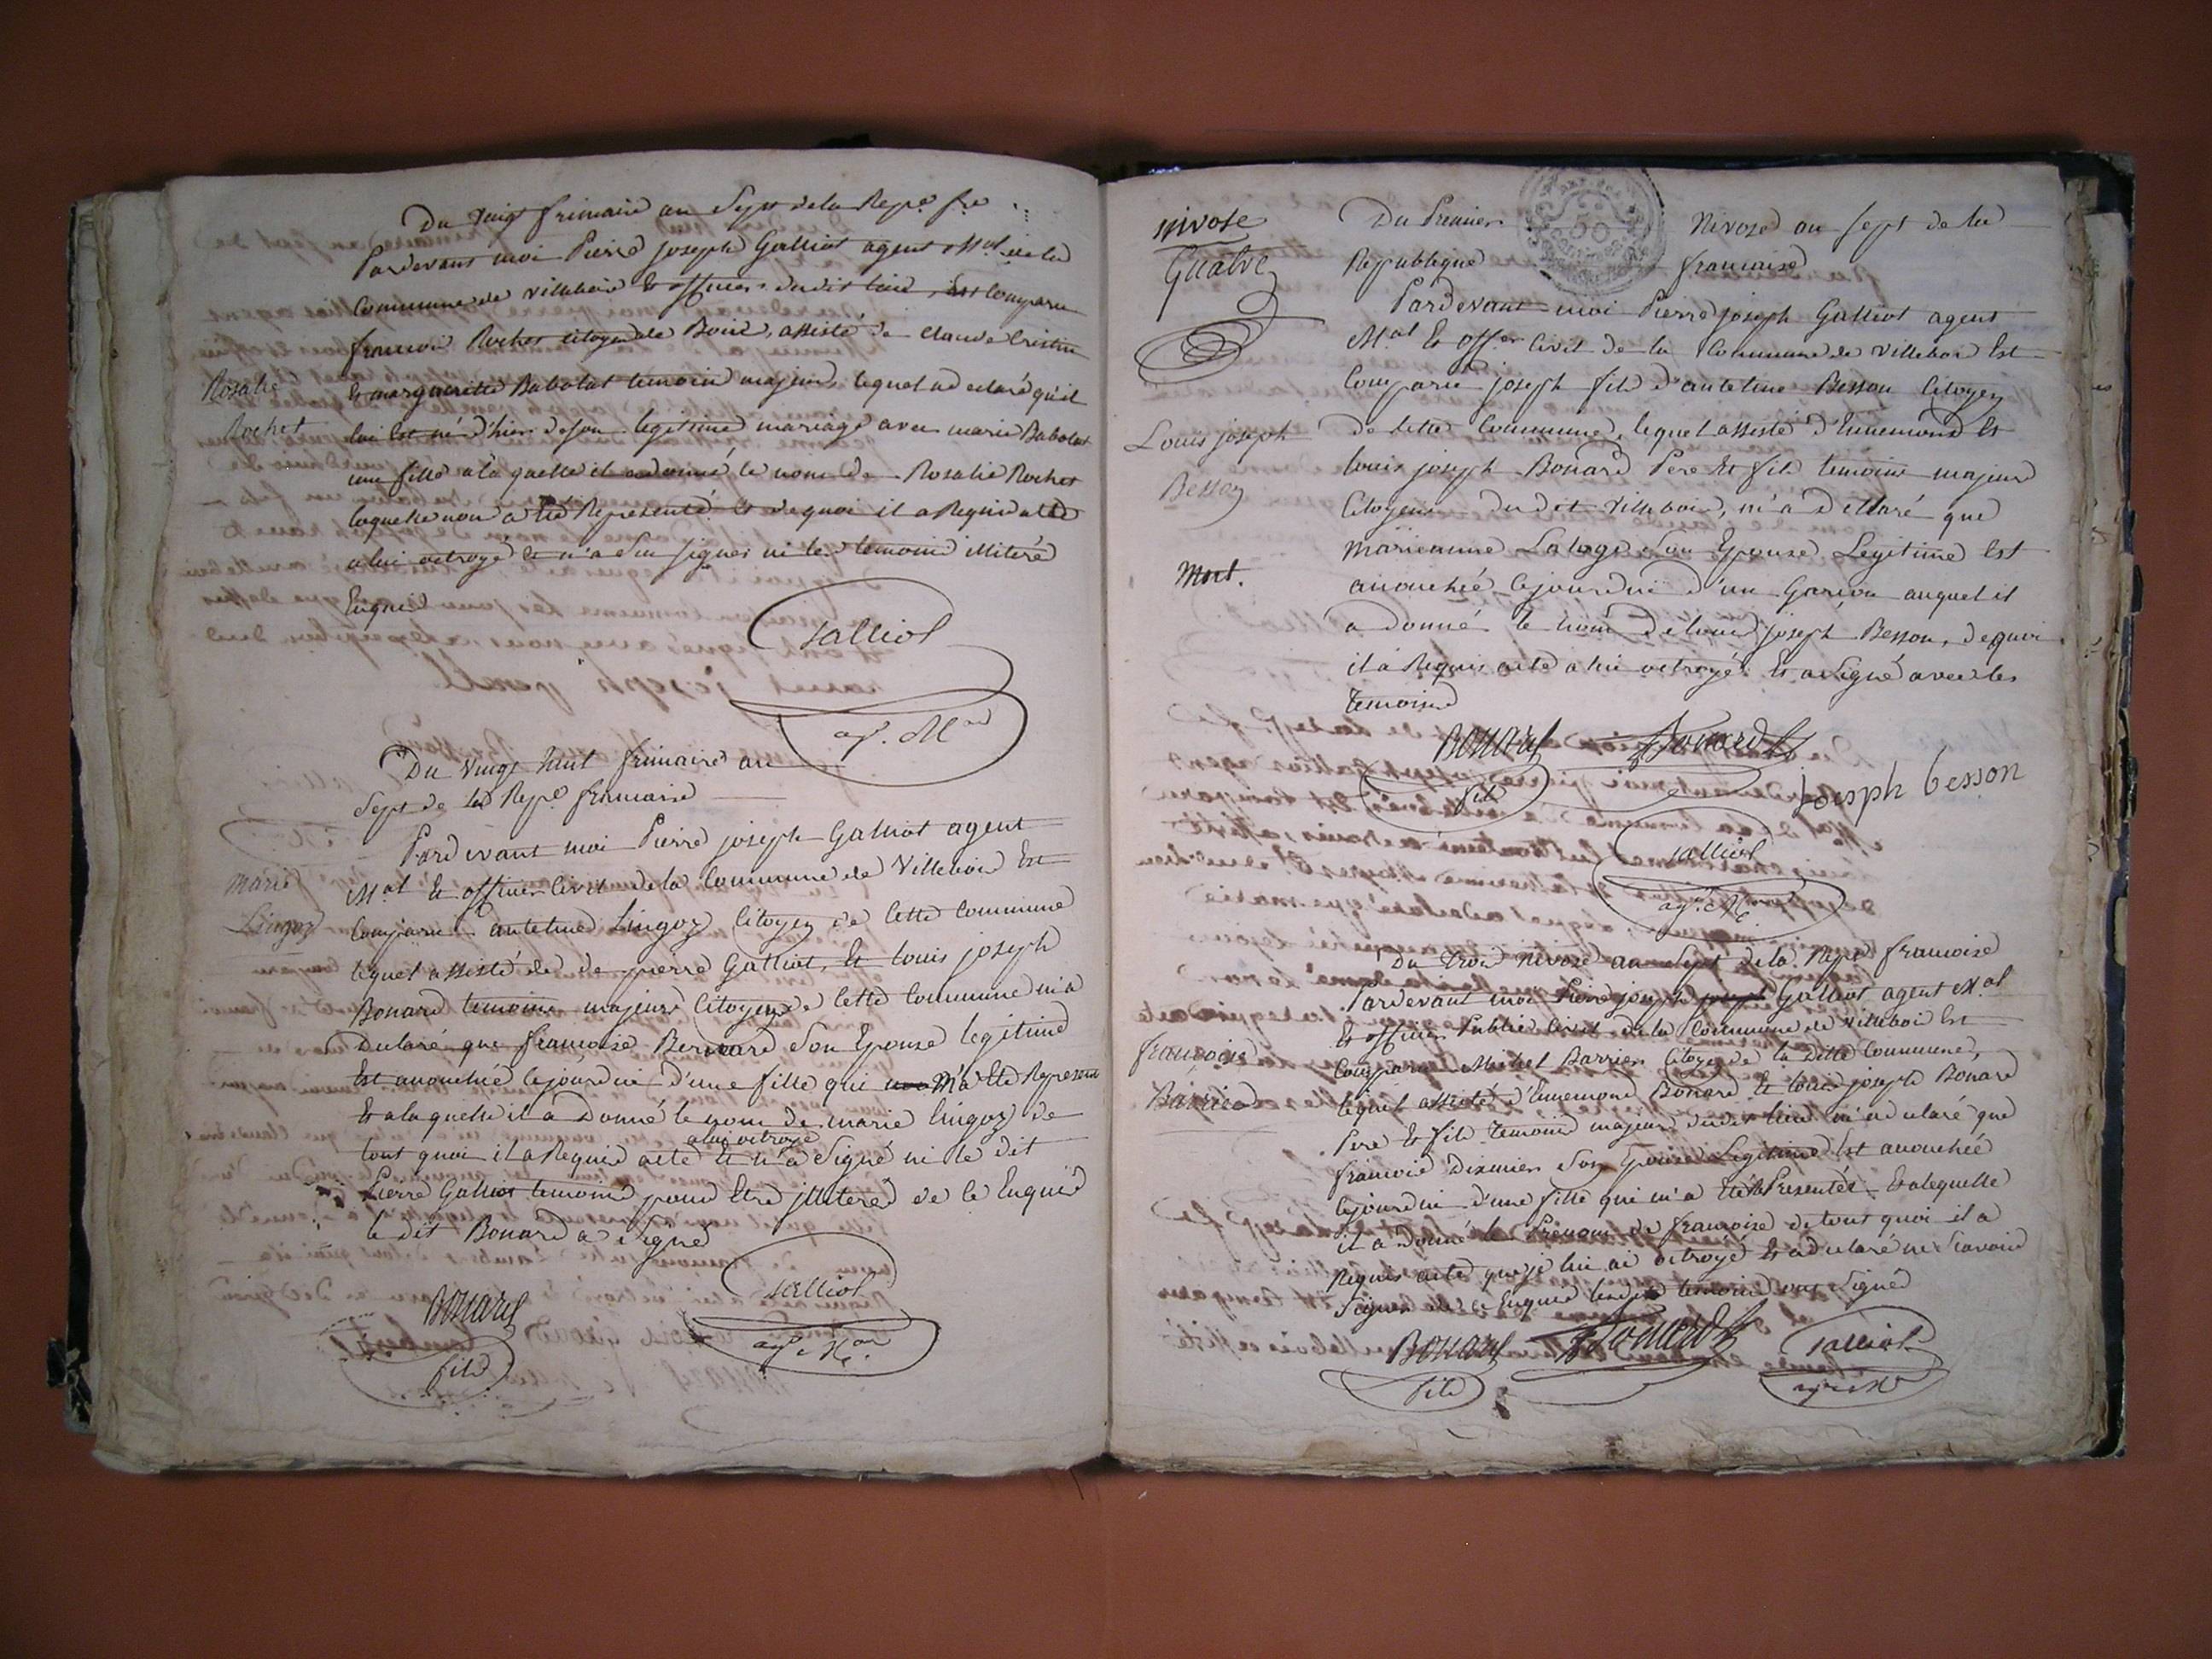 Du vingt frimaire an Sept de la Repe fse
Pardevant moi Pierre joseph Galliot agent Mal de la
Commune de villebois Et officier dudit lieu, Est Comparu
francois Rochet citoyen de Bouis, assisté de claude Cristin
Et marguerite Babolat temoins majeurs lequel a declaré qu'il
Rosalie
Rochet
lui Est né d'hier de son legitime mariage avec marie Babolat
une fille a la quelle il a donné le nom de Rosalie Rochet
laquelle nous a Eté Representé Et de quoi il a Requis acte
a lui octroyé Et n'a Su signer ni les temoins illiteré
Enquis
Galliot
ag. Mal
Du vingt huit frimaire an
Sept de la Repe francaise
Pardevant moi Pierre joseph Galliot agent
Mal Et officier Civil de la Commune de Villebois Est
marie
Lingoz
Comparu antelme Lingoz Citoyen de Cette Commune
lequel assisté de de pierre Galliot, Et louis joseph
Bonard temoins majeurs Citoyens de Cette Commune m'a
Declaré que francoise Bernard Son Epouse legitime
Est accouchée cejourdui d'une fille qui m'a Eté Represente
Et a la quelle il a Donné le nom de marie lingoz de
a lui octroyé
tout quoi il a Requis acte Et n'a Signé ni le dit
Pierre Galliot temoins pour Etre illiteres de ce Enquis
le dit Bonard a Signé
Bonard
fils
Galliot
ag. Mal
nivose
Quatre
Du Premier Nivose an Sept de la
Republique francaise
Pardevant moi Pierre joseph Galliot agent
Mal Et offer Civil de la Commune de Villebois Est
Comparu joseph fils d'antelme Besson Citoyen
Louis joseph
Besson
de Cette Commune, lequel assisté d'Ennemond Et
louis joseph Bonard Pere Et fils temoins majeurs
Citoyens du dit Villebois, m'a Declaré que
marieanne Laloge Son Epouse Legitime Est
mort.
accouchée cejourdui d'un Garcon auquel il
a Donné le nom de louis joseph Besson, de quoi
il a Requis acte a lui octroyé Et a Signé avec les
temoins
Bonard
fils
Bonard
joseph besson
Galliot
ag. Mal
Du trois nivose an Sept de la Repe francoise
Pardevant moi Pierre joseph joseph Galliot agent Mal
Et officier Public Civil de la Commune de Villebois Est
francoise
Barrier
Comparu Michel Barrier Citoyen de la ditte Commune,
lequel assisté d'Ennemond Bonard Et louis joseph Bonard
Pere Et fils temoins majeurs dudit lieu m'a declaré que
francoise Dixmier Son Epouse Legitime Est accouchée
cejourdui d'une fille qui m'a Eté Presentée Et a lequelle
il a Donné le Prenom de francoise de tout quoi il a
Requis acte que je lui ai octroyé Et a declaré ne Scavoir
Signer de ce Enquis temoins ont Signés
Bonard
fils
Bonard
Galliot
ag. Mal